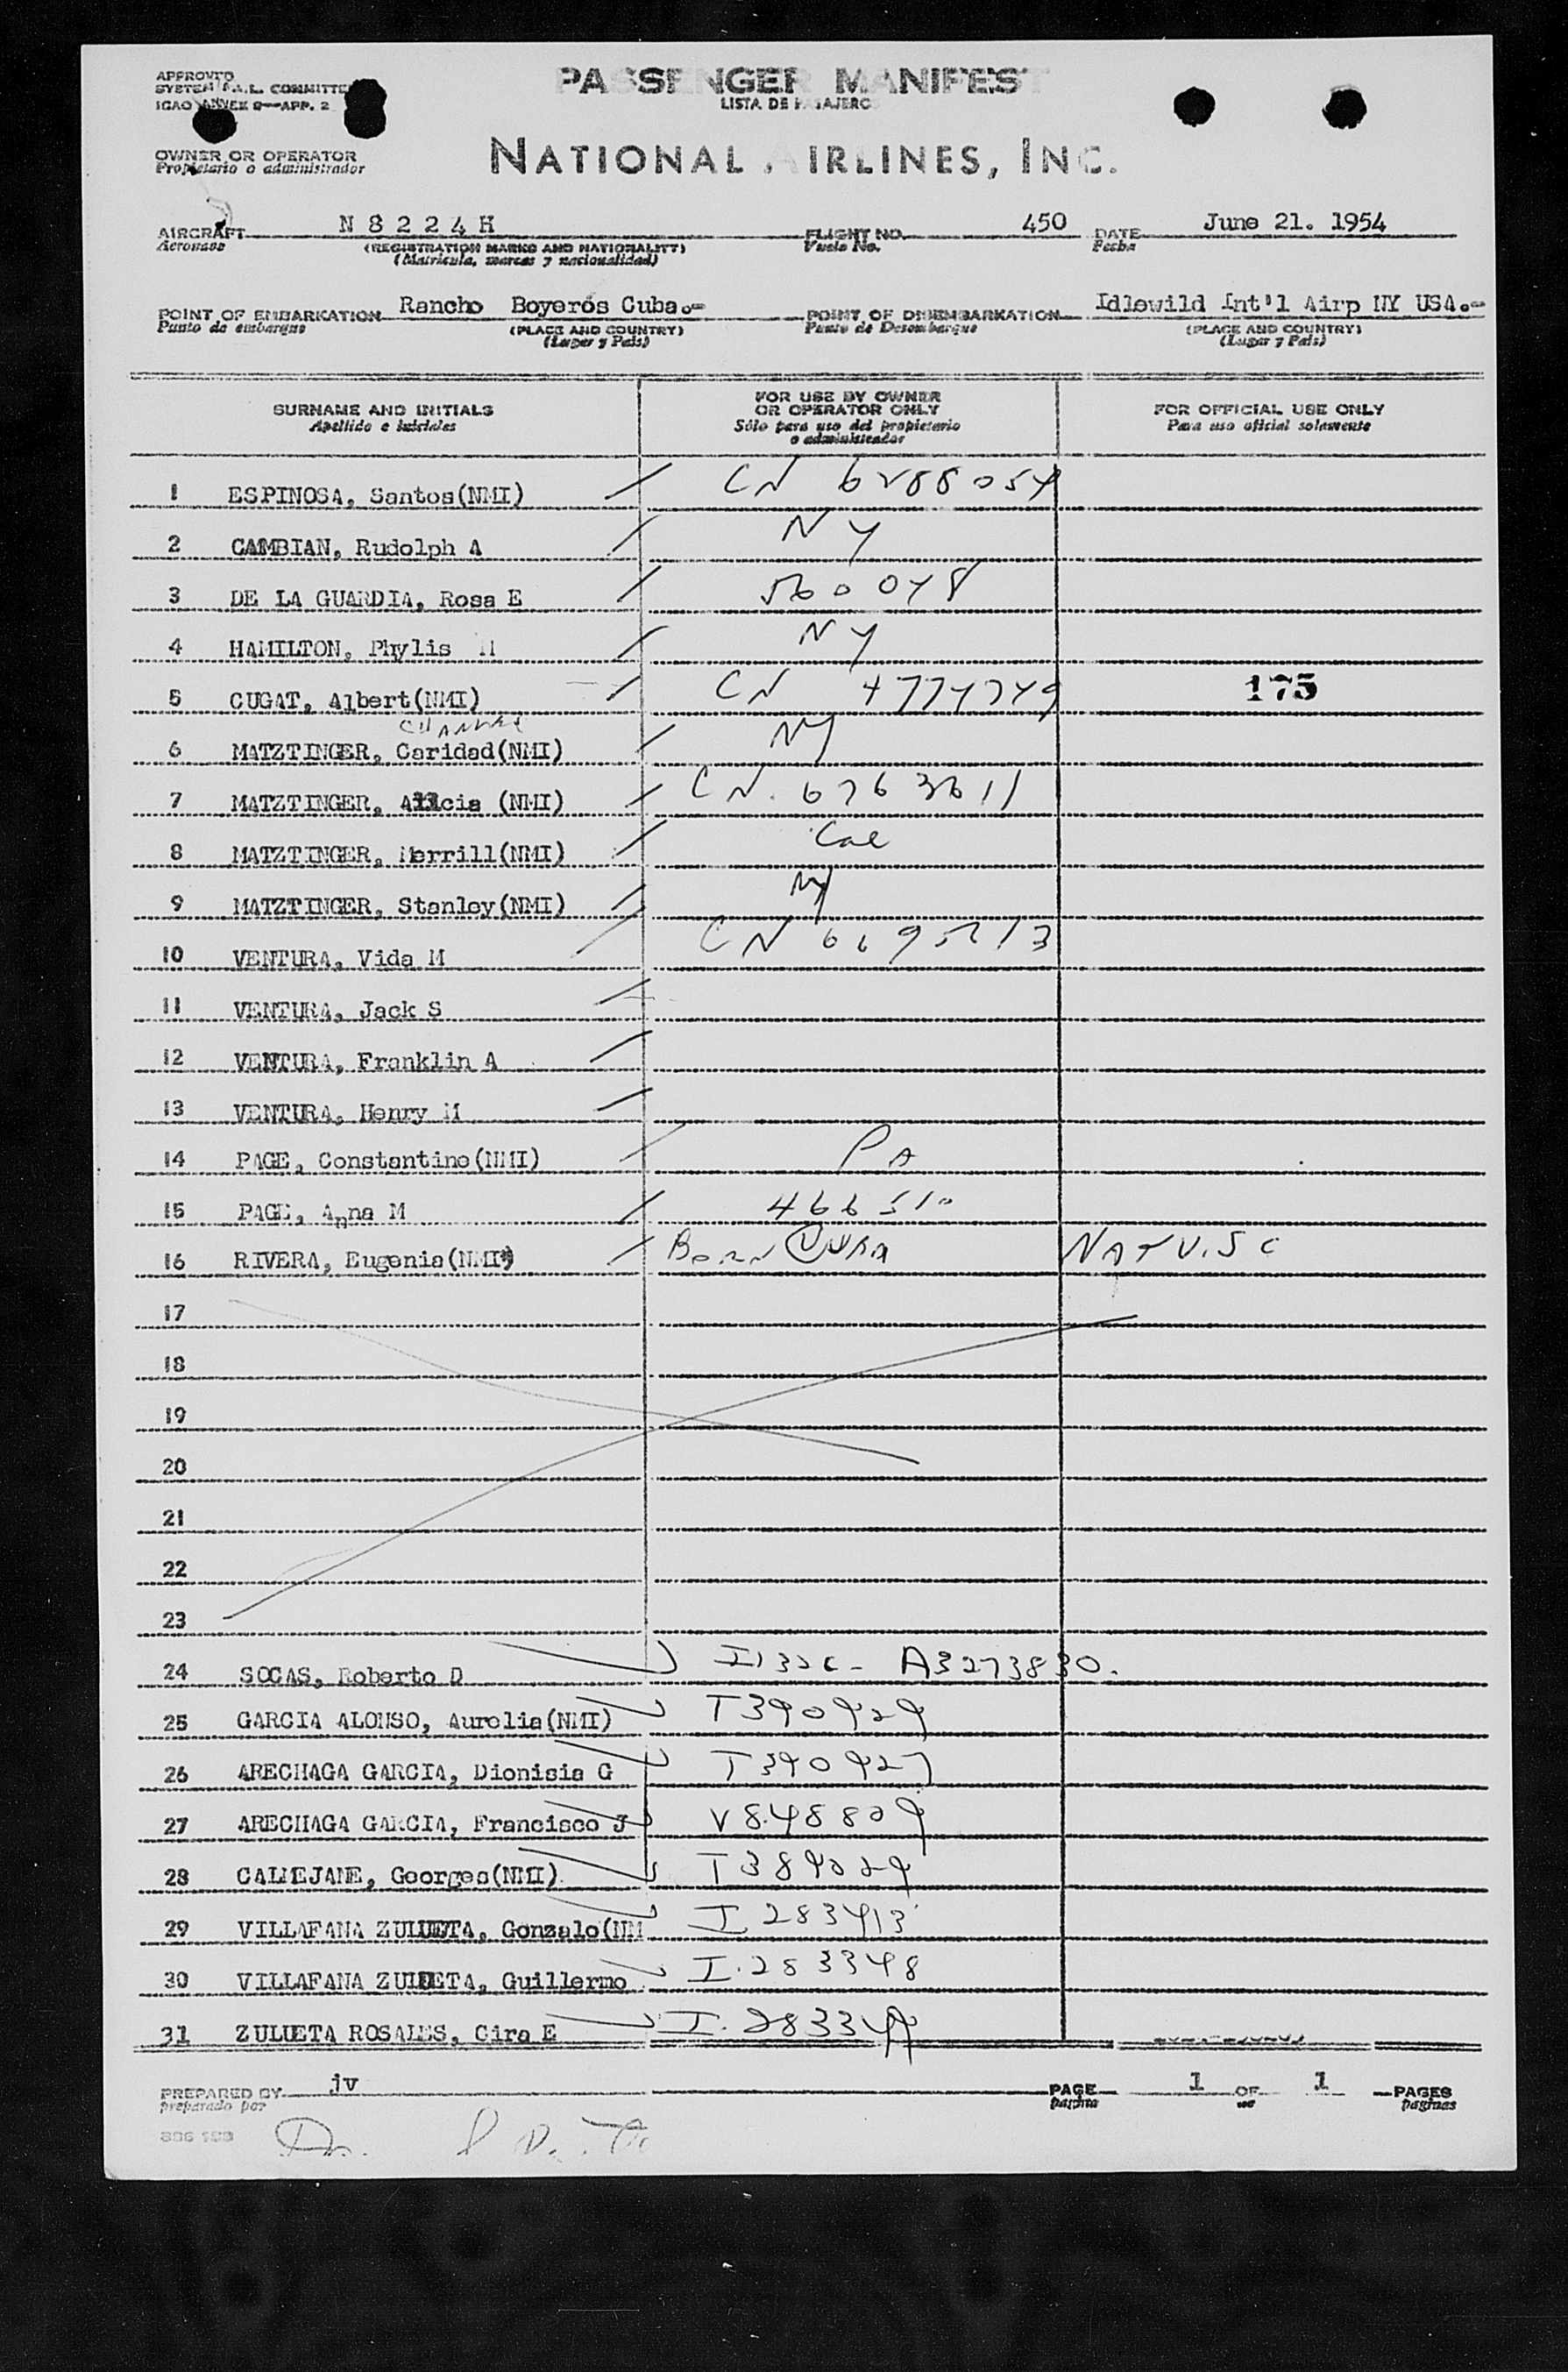 APPROVED
SYSTEM F.A.L. COMMITTEE
ICAO ANNEX 9—APP. 2
PASSENGER MANIFEST
LISTA DE PASAJEROS
OWNER OR OPERATOR
Propietario o administrador
NATIONAL AIRLINES, INC.
AIRCRAFT N 8 2 2 4 H FLIGHT NO. 450 DATE June 21. 1954
Aeronave (REGISTRATION MARKS AND NATIONALITY) Vuelo No. Fecha
(Matricula, marcas y nacionalidad)
POINT OF EMBARKATION Rancho Boyeros Cuba.- POINT OF DISEMBARKATION Idlewild Int'l Airp NY USA.-
Punto de embarque (PLACE AND COUNTRY) Punto de Desembarque (PLACE AND COUNTRY)
(Lugar y Pais) (Lugar y Pais)
SURNAME AND INITIALS
Apellido e iniciales
FOR USE BY OWNER
OR OPERATOR ONLY
Sólo para uso del propietario
o administrador
FOR OFFICIAL USE ONLY
Para uso oficial solamente
1 ESPINOSA, Santos(NMI) CN 6288054
2 CAMBIAN, Rudolph A NY
3 DE LA GUARDIA, Rosa E 560048
4 HAMILTON, Phylis M NY
5 CUGAT, Albert(NMI) CN 4774749 175
6 MATZTINGER, Caridad(NMI) NY
7 MATZTINGER, Alicia (NMI) CN. 6763611
8 MATZTINGER, Merrill(NMI) Cal
9 MATZTINGER, Stanley(NMI) NY
10 VENTURA, Vida M CN 6695213
11 VENTURA, Jack S
12 VENTURA, Franklin A
13 VENTURA, Henry M
14 PAGE, Constantino(NMI) PA
15 PAGE, Anna M 466510
16 RIVERA, Eugenia(NMI) Born Cuba NAT U.S C
17
18
19
20
21
22
23
24 SOCAS, Roberto D I132c - A3273830.
25 GARCIA ALONSO, Aurelia(NMI) T390929
26 ARECHAGA GARCIA, Dionisia G T390927
27 ARECHAGA GARCIA, Francisco J V848809
28 CALMEJANE, Georges(NMI) T389029
29 VILLAFANA ZULUETA, Gonzalo(NM I 283413
30 VILLAFANA ZULUETA, Guillermo I.283348
31 ZULUETA ROSALES, Cira E I.28334
PREPARED BY jv PAGE 1 OF 1 PAGES
preparado por pagina de paginas